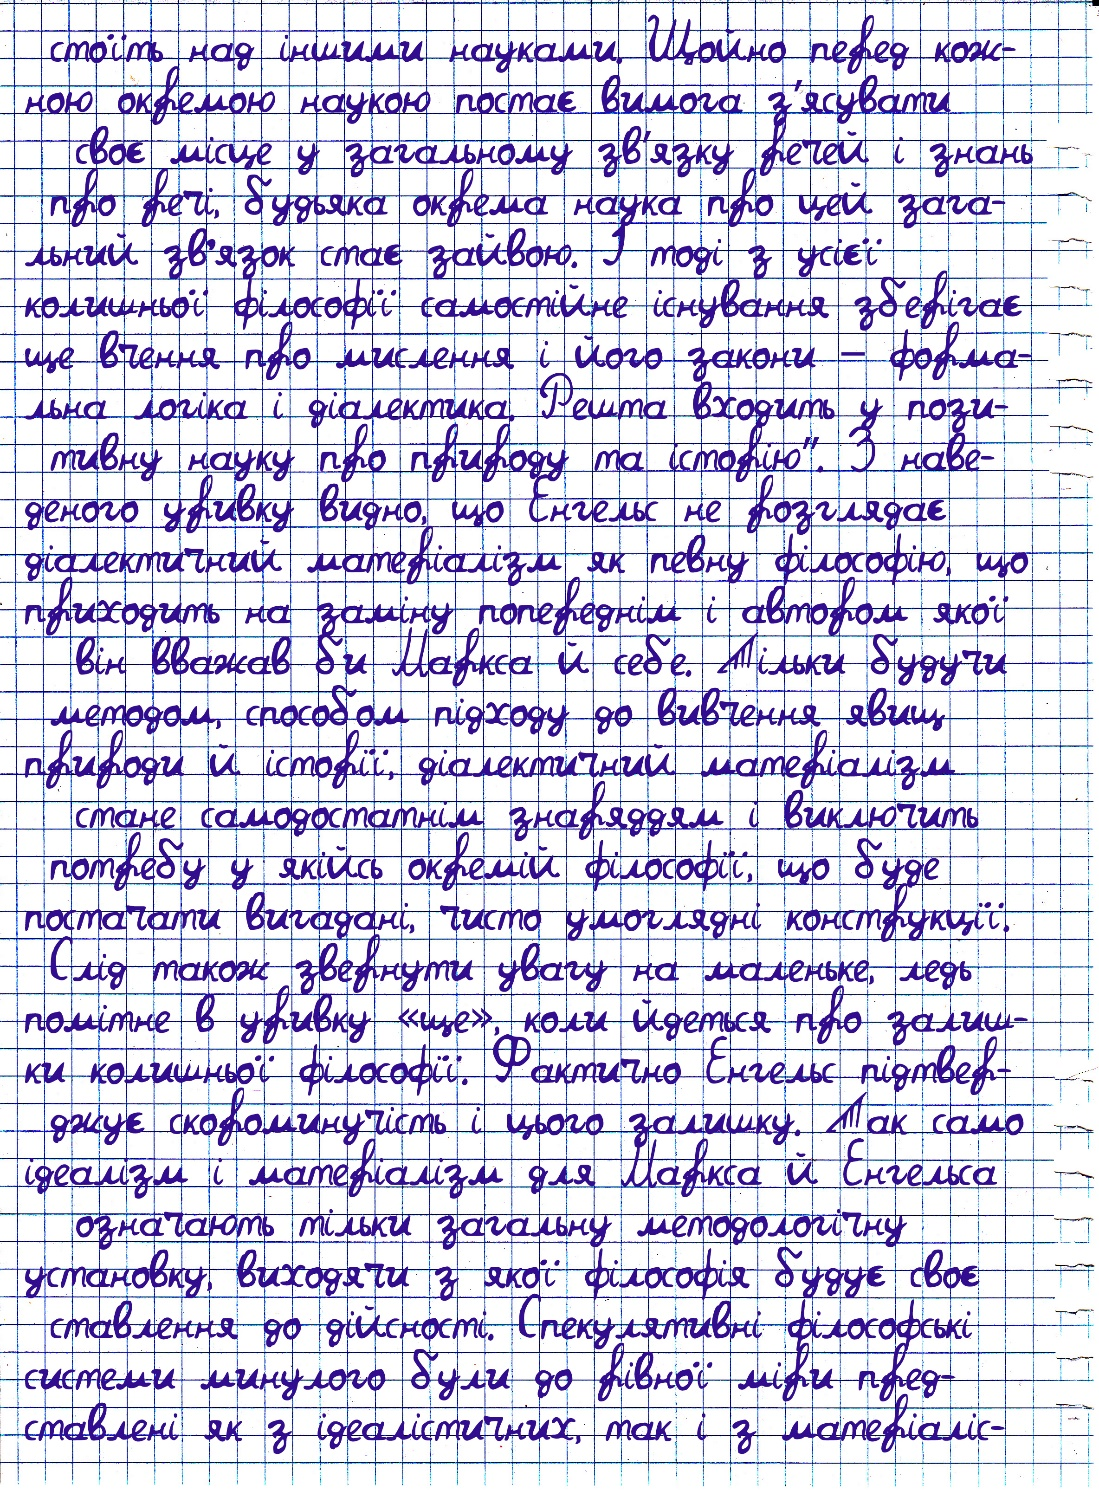 стоїть над іншими науками. Щойно перед кож-
ною окремою наукою постає вимога з'ясувати
своє місце у загальному зв'язку речей і знань
про речі, будьяка окрема наука про цей зага-
льний зв'язок стає зайвою. І тоді з усієї
колишньої філософії самостійне існування зберігає
ще вчення про мислення і його закони — форма-
льна логіка і діалектика. Решта входить у пози-
тивну науку про природу та історію". З наве-
деного уривку видно, що Енгельс не розглядає
діалектичний матеріалізм як певну філософію, що
приходить на заміну попереднім і автором якої
він вважав би Маркса й себе. Тільки будучи
методом, способом підходу до вивчення явищ
природи й історії, діалектичний матеріалізм
стане самодостатнім знаряддям і виключить
потребу у якійсь окремій філософії, що буде
постачати вигадані, чисто умоглядні конструкції.
Слід також звернути увагу на маленьке, ледь
помітне в уривку «ще», коли йдеться про залиш-
ки колишньої філософії. Фактично Енгельс підтвер-
джує скороминучість і цього залишку. Так само
ідеалізм і матеріалізм для Маркса й Енгельса
означають тільки загальну методологічну
установку, виходячи з якої філософія будує своє
ставлення до дійсності. Спекулятивні філософські
системи минулого були до рівної міри пред-
ставлені як з ідеалістичних, так і з матеріаліс-